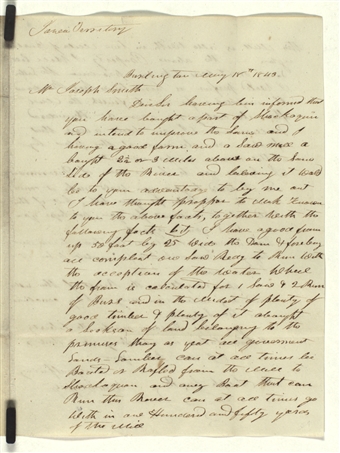 Iowa Territory
Burlington May 18th 1843.
Mr Joseph Smith
Dear Sir having been informed that
you have bought a part of Shockoquon
and intend to improve the same and I
having a good farm and a Saw Mill a
bought 2½ or 3 Miles above on the same
side of the River and believing it would
be to your advantage to buy me out
I have thought propper to Make known
to you the above facts, together with the
following facts to wit I have a good fram
up 50 feet by 25 Wide the Dam & forebay
all compleat one Saw Redy to Run With
the exception of the Water Wheel
the fram is calculated for 1 Saw & 2 Run
of Burs and in the Midst of plenty of
good timber & plenty of it a bought
a Section of land belonging to the
premises thoug as yeat all government
Lands - Lumber can at all times be
Boated & Rafted from the Mill to
Shockoquon and any Boat that can
Run this River can at all times go
With in one Hundred and fifty yards
of the Mill